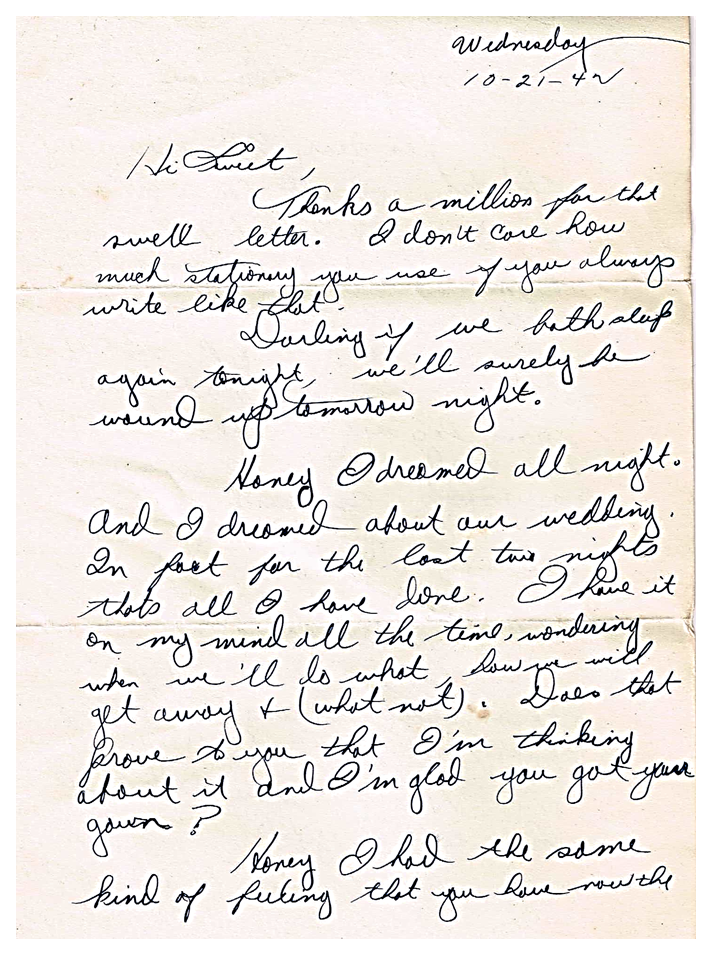 Wednesday
10-21-42
Hi Sweet,
Thanks a million for that
swell letter. I don't care how
much stationary you use if you always
write like that.
Darling if we both sleep
again tonight, we'll surely be
wound up tomorrow night.
Honey I dreamed all night.
And I dreamed about our wedding.
In fact for the last two nights
thats all I have done. I have it
on my mind all the time, wondering
when we'll do what, how we will
get away & (what not). Does that
prove to you that I'm thinking
about it and I'm glad you got your
gown?
Honey I had the same
kind of feeling that you have now the